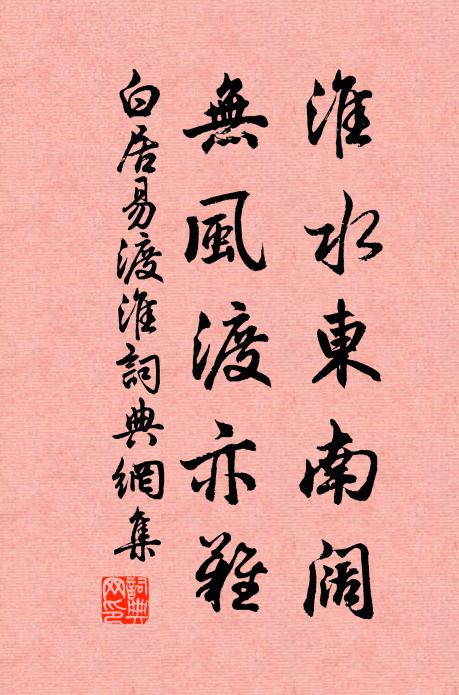 淮水東南闊
無風渡亦難
白居易渡淮詞典網集
詞典网印